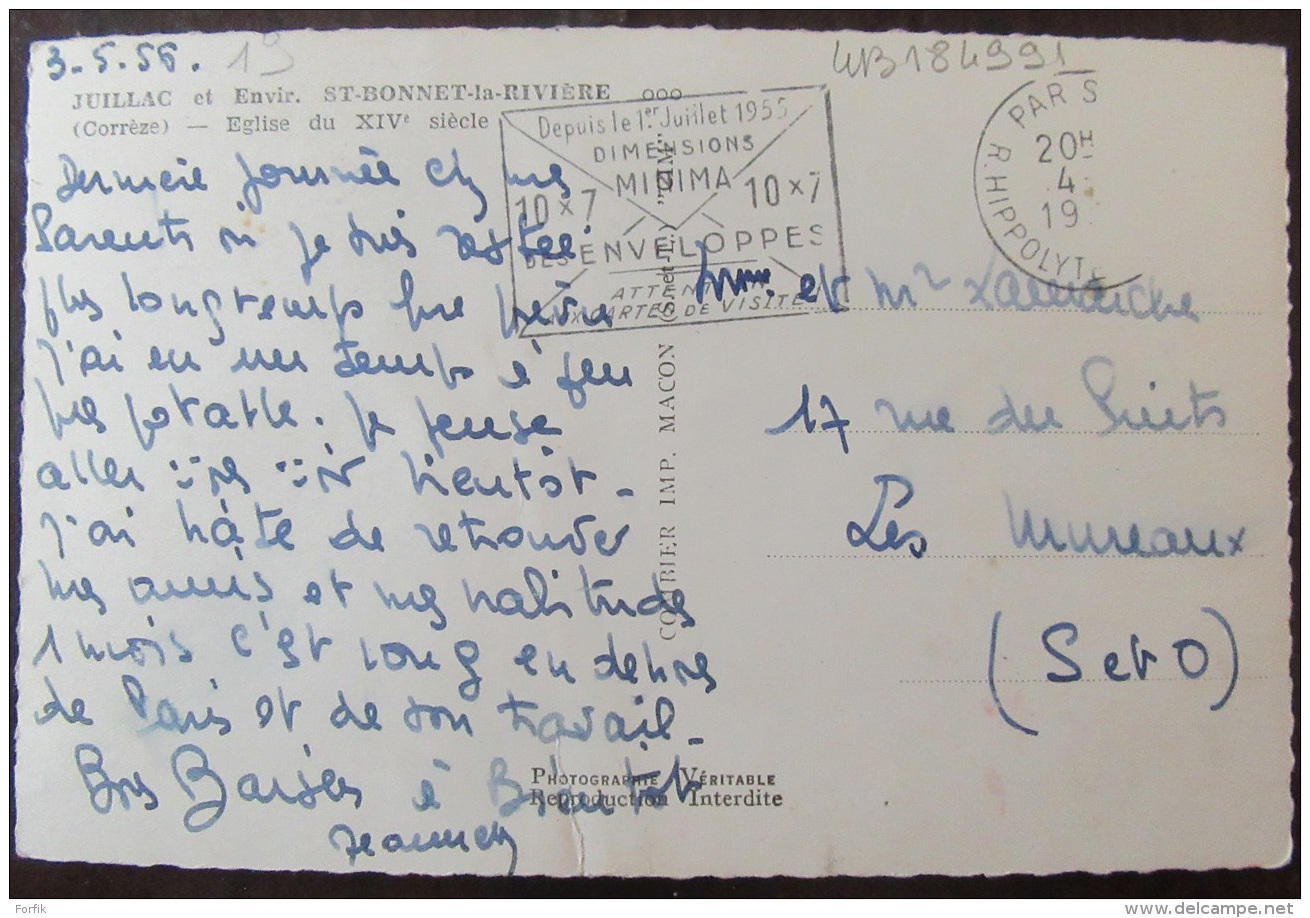 3.5.56. 19
WB184991
JUILLAC et Envir. ST-BONNET-la-RIVIÈRE
(Corrèze) — Eglise du XIVe siècle
Depuis le 1er Juillet 1955
DIMENSIONS
MINIMA
10 x 7 10 x 7
DES ENVELOPPES
ATTENTION
AUX CARTES DE VISITE
PARIS
R. HIPPOLYTE
20H
4
19
Dernière journée ch mes
Parents si je suis restée
plus longtemps que prévu
j'ai eu un temps à peu
près potable. je pense
aller vous voir bientôt -
J'ai hâte de retrouver
mes amis et mes habitudes
1 mois c'est long en dehors
de Paris et de son travail -
Bons Baisers à Bientôt
COMBIER IMP. MACON (S.-et-L.) "CIM"
Mme et Mr Lamarche
17 rue du Puits
Les Mureaux
(S et O)
PHOTOGRAPHIE VÉRITABLE
Reproduction Interdite
Forfik
delcampe.net